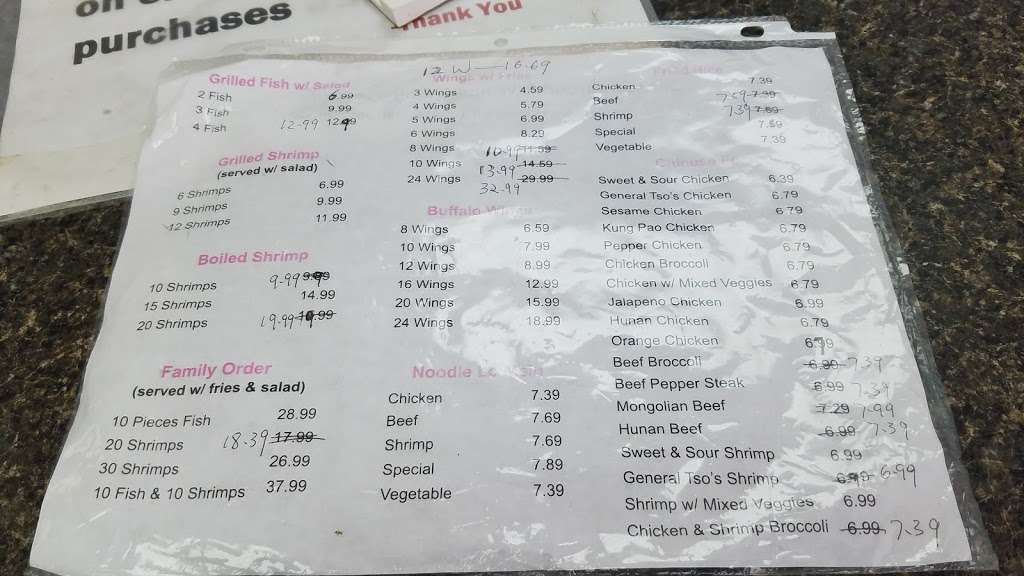 on
purchases
Thank You
Grilled Fish w/ Salad
2 Fish 6.99
3 Fish 9.99
4 Fish 12-99 12.99
Grilled Shrimp
(served w/ salad)
6 Shrimps 6.99
9 Shrimps 9.99
12 Shrimps 11.99
Boiled Shrimp
10 Shrimps 9-99 9.99
15 Shrimps 14.99
20 Shrimps 19.99
Family Order
(served w/ fries & salad)
10 Pieces Fish 28.99
20 Shrimps 18.39 17.99
30 Shrimps 26.99
10 Fish & 10 Shrimps 37.99
12 W — 16.69
Wings w/ Fries
3 Wings 4.59
4 Wings 5.79
5 Wings 6.99
6 Wings 8.29
8 Wings 10.99 11.59
10 Wings 13.99 14.59
24 Wings 29.99
32.99
Buffalo Wings
8 Wings 6.59
10 Wings 7.99
12 Wings 8.99
16 Wings 12.99
20 Wings 15.99
24 Wings 18.99
Noodle Lo Mein
Chicken 7.39
Beef 7.69
Shrimp 7.69
Special 7.89
Vegetable 7.39
Fried Rice
Chicken 7.39
Beef 7.59 7.39
Shrimp 7.39 7.69
Special 7.59
Vegetable 7.39
Chinese
Sweet & Sour Chicken 6.39
General Tso's Chicken 6.79
Sesame Chicken 6.79
Kung Pao Chicken 6.79
Pepper Chicken 6.79
Chicken Broccoli 6.79
Chicken w/ Mixed Veggies 6.79
Jalapeno Chicken 6.99
Hunan Chicken 6.79
Orange Chicken 6.99
Beef Broccoli 6.99 7.39
Beef Pepper Steak 6.99 7.39
Mongolian Beef 7.29 7.99
Hunan Beef 6.99 7.39
Sweet & Sour Shrimp 6.99
General Tso's Shrimp 6.99
Shrimp w/ Mixed Veggies 6.99
Chicken & Shrimp Broccoli 6.99 7.39